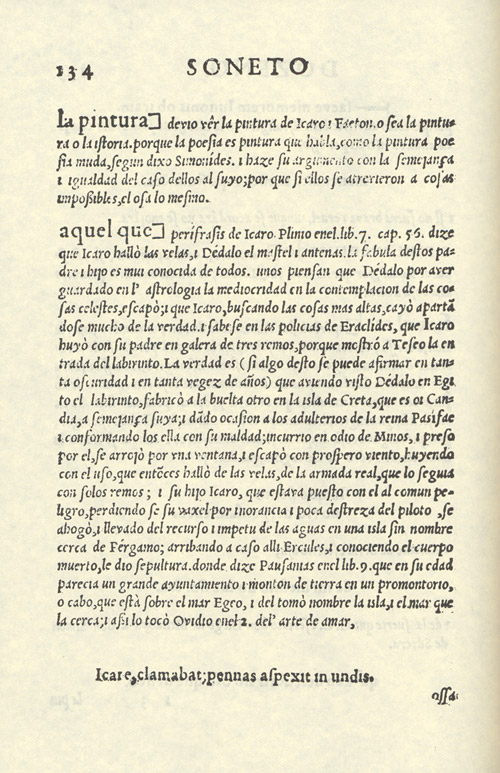 134 SONETO
la pintura] devio vêr la pintura de Icaro i Faeton.o sea la pintu-
ra o la istoria.porque la poesia es pintura que habla,como la pintura poe
sia muda,segun dixo Simonides. i haze su argumento con la semejança
i igualdad del caso dellos al suyo;por que si ellos se atrevieron a cosas
impossibles,el osa lo mesmo.
aquel que] perifrasis de Icaro. Plinio enel.lib.7. cap. 56. dize
que Icaro hallò las velas,i Dédalo el mastel i antenas.la fabula destos pa-
dre i hijo es mui conocida de todos. unos piensan que Dédalo por aver
guardado en l' astrologia la mediocridad en la contemplacion de las co-
sas celestes,escapò;i que Icaro,buscando las cosas mas altas,cayò apartã
dose mucho de la verdad.i sabese en las policias de Eraclides, que Icaro
huyò con su padre en galera de tres remos,porque mostrò a Teseo la en
trada del labirinto.La verdad es ( si algo desto se puede afirmar en tan-
ta oscuridad i en tanta vegez de años) que aviendo visto Dédalo en Egi
to el labirinto,fabricò a la buelta otro en la isla de Creta,que es oi Can-
dia,a semejança suya;i dãdo ocasion a los adulterios de la reina Pasifae
i conformando los ella con su maldad;incurrio en odio de Minos, i preso
por el,se arrojò por vna ventana,i escapò con prospero viento,huyendo
con el uso,que entõces hallò de las velas,de la armada real,que lo seguia
con solos remos ; i su hijo Icaro, que estava puesto con el al comun pe-
ligro,perdiendo se su vaxel por inorancia i poca destreza del piloto ,se
ahogò,i llevado del recurso i impetu de las aguas en una isla sin nombre
cerca de Férgamo; arribando a caso alli Ercules,i conociendo el cuerpo
muerto,le dio sepultura.donde dize Pausanias enel lib.9.que en su edad
parecia un grande ayuntamiento i monton de tierra en un promontorio,
o cabo,que està sobre el mar Egeo, i del tomò nombre la isla,i el mar que
la cerca;i assi lo tocò Ovidio enel 2. del' arte de amar,
Icare,clamabat;pennas aspexit in undis.
ossa